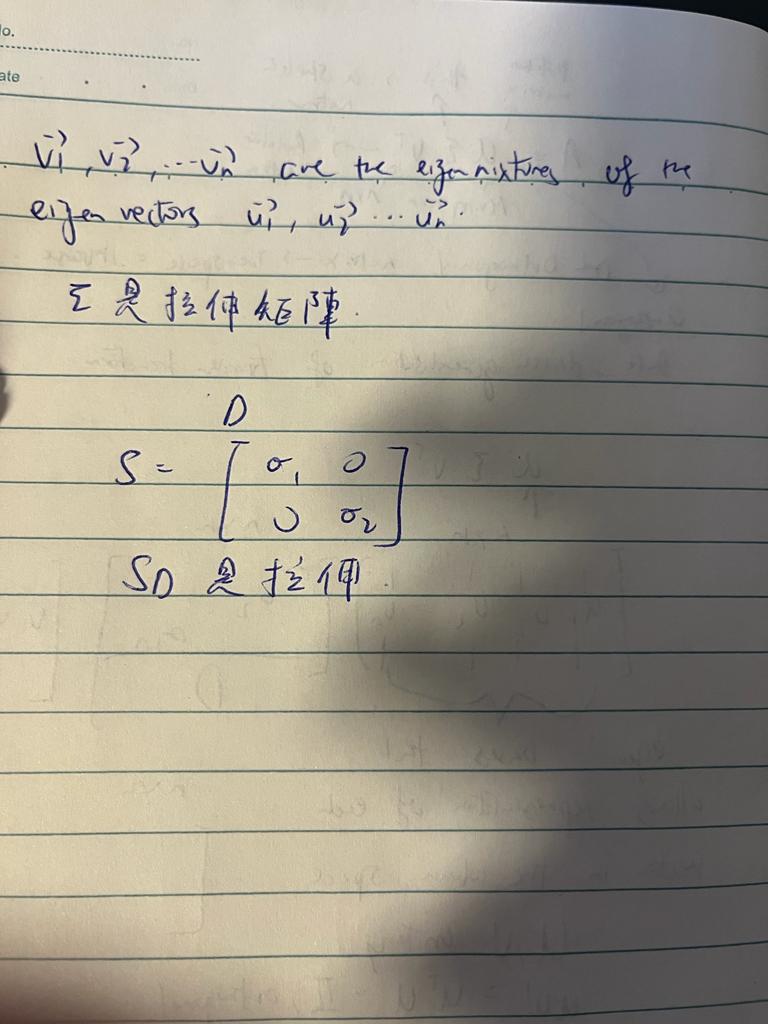 No.
ate
V⃗1, V⃗2, ... V⃗n are the eigenmixtures of the
eigen vectors u⃗1, u⃗2 ... u⃗n.
Σ 是拉伸矩陣.
D
S = [ σ1 0
0 σ2 ]
SD 是拉伸.